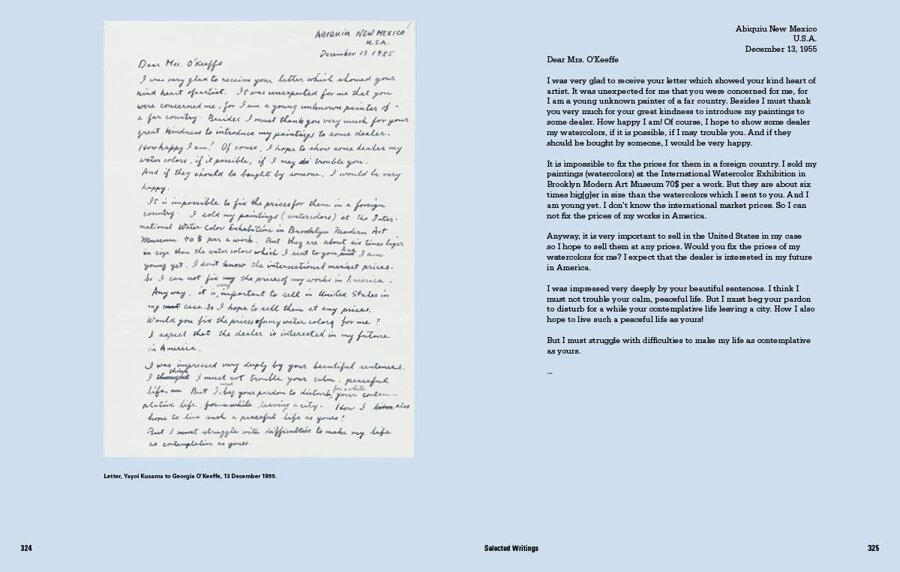 ABIQUIU NEW MEXICO
U.S.A.
December 13 1955
Dear Mrs. O'Keeffe
I was very glad to receive your letter which showed your
kind heart of artist. It was unexpected for me that you
were concerned me, for I am a young unknown painter of
a far country. Besides I must thank you very much for your
great kindness to introduce my paintings to some dealer.
How happy I am! Of course, I hope to show some dealer my
water colors, if it possible, if I may trouble you.
And if they should be bought by someone, I would be very
happy.
It is impossible to fix the prices for them in a foreign
country. I sold my paintings (watercolors) at the Inter-
national Water Color Exhibition in Brooklyn Modern Art
Museum 70 $ par a work. But they are about six times biger
in size than the water colors which I sent to you, And I am
young yet. I don't know the international market prices.
So I can not fix the prices of my works in America.
Anyway, it is very important to sell in United States in
my case. So I hope to sell them at any prices.
Would you fix the prices of my water colors for me?
I expect that the dealer is interested in my future
in America.
I was impressed very deeply by your beautiful sentences.
I think I must not trouble your calm, peaceful
life. But I must beg your pardon to disturb for a while your contem-
plative life leaving a city. How I also
hope to live such a peaceful life as yours!
But I must struggle with difficulties to make my life
as contemplative as yours.
Letter, Yayoi Kusama to Georgia O'Keeffe, 13 December 1955.
324
Abiquiu New Mexico
U.S.A.
December 13, 1955
Dear Mrs. O'Keeffe
I was very glad to receive your letter which showed your kind heart of
artist. It was unexpected for me that you were concerned for me, for
I am a young unknown painter of a far country. Besides I must thank
you very much for your great kindness to introduce my paintings to
some dealer. How happy I am! Of course, I hope to show some dealer
my watercolors, if it is possible, if I may trouble you. And if they
should be bought by someone, I would be very happy.
It is impossible to fix the prices for them in a foreign country. I sold my
paintings (watercolors) at the International Watercolor Exhibition in
Brooklyn Modern Art Museum 70$ per a work. But they are about six
times big[g]er in size than the watercolors which I sent to you. And I
am young yet. I don't know the international market prices. So I can
not fix the prices of my works in America.
Anyway, it is very important to sell in the United States in my case
so I hope to sell them at any prices. Would you fix the prices of my
watercolors for me? I expect that the dealer is interested in my future
in America.
I was impressed very deeply by your beautiful sentences. I think I
must not trouble your calm, peaceful life. But I must beg your pardon
to disturb for a while your contemplative life leaving a city. How I also
hope to live such a peaceful life as yours!
But I must struggle with difficulties to make my life as contemplative
as yours.
...
Selected Writings
325